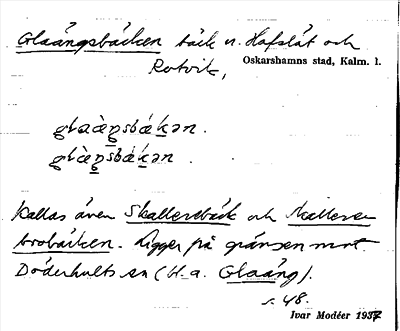 Glaängsbäcken bäck n. Hafslät och
Rotvik,
Oskarshamns stad, Kalm. l.
glaàŋsbákən.
glàŋsbákən.
Kallas även Skallersbäck och Skalleren
brobäcken. Ligger på gränsen mot
Döderhults sn (H-a. Glaäng).
s. 48.
Ivar Modéer 1937